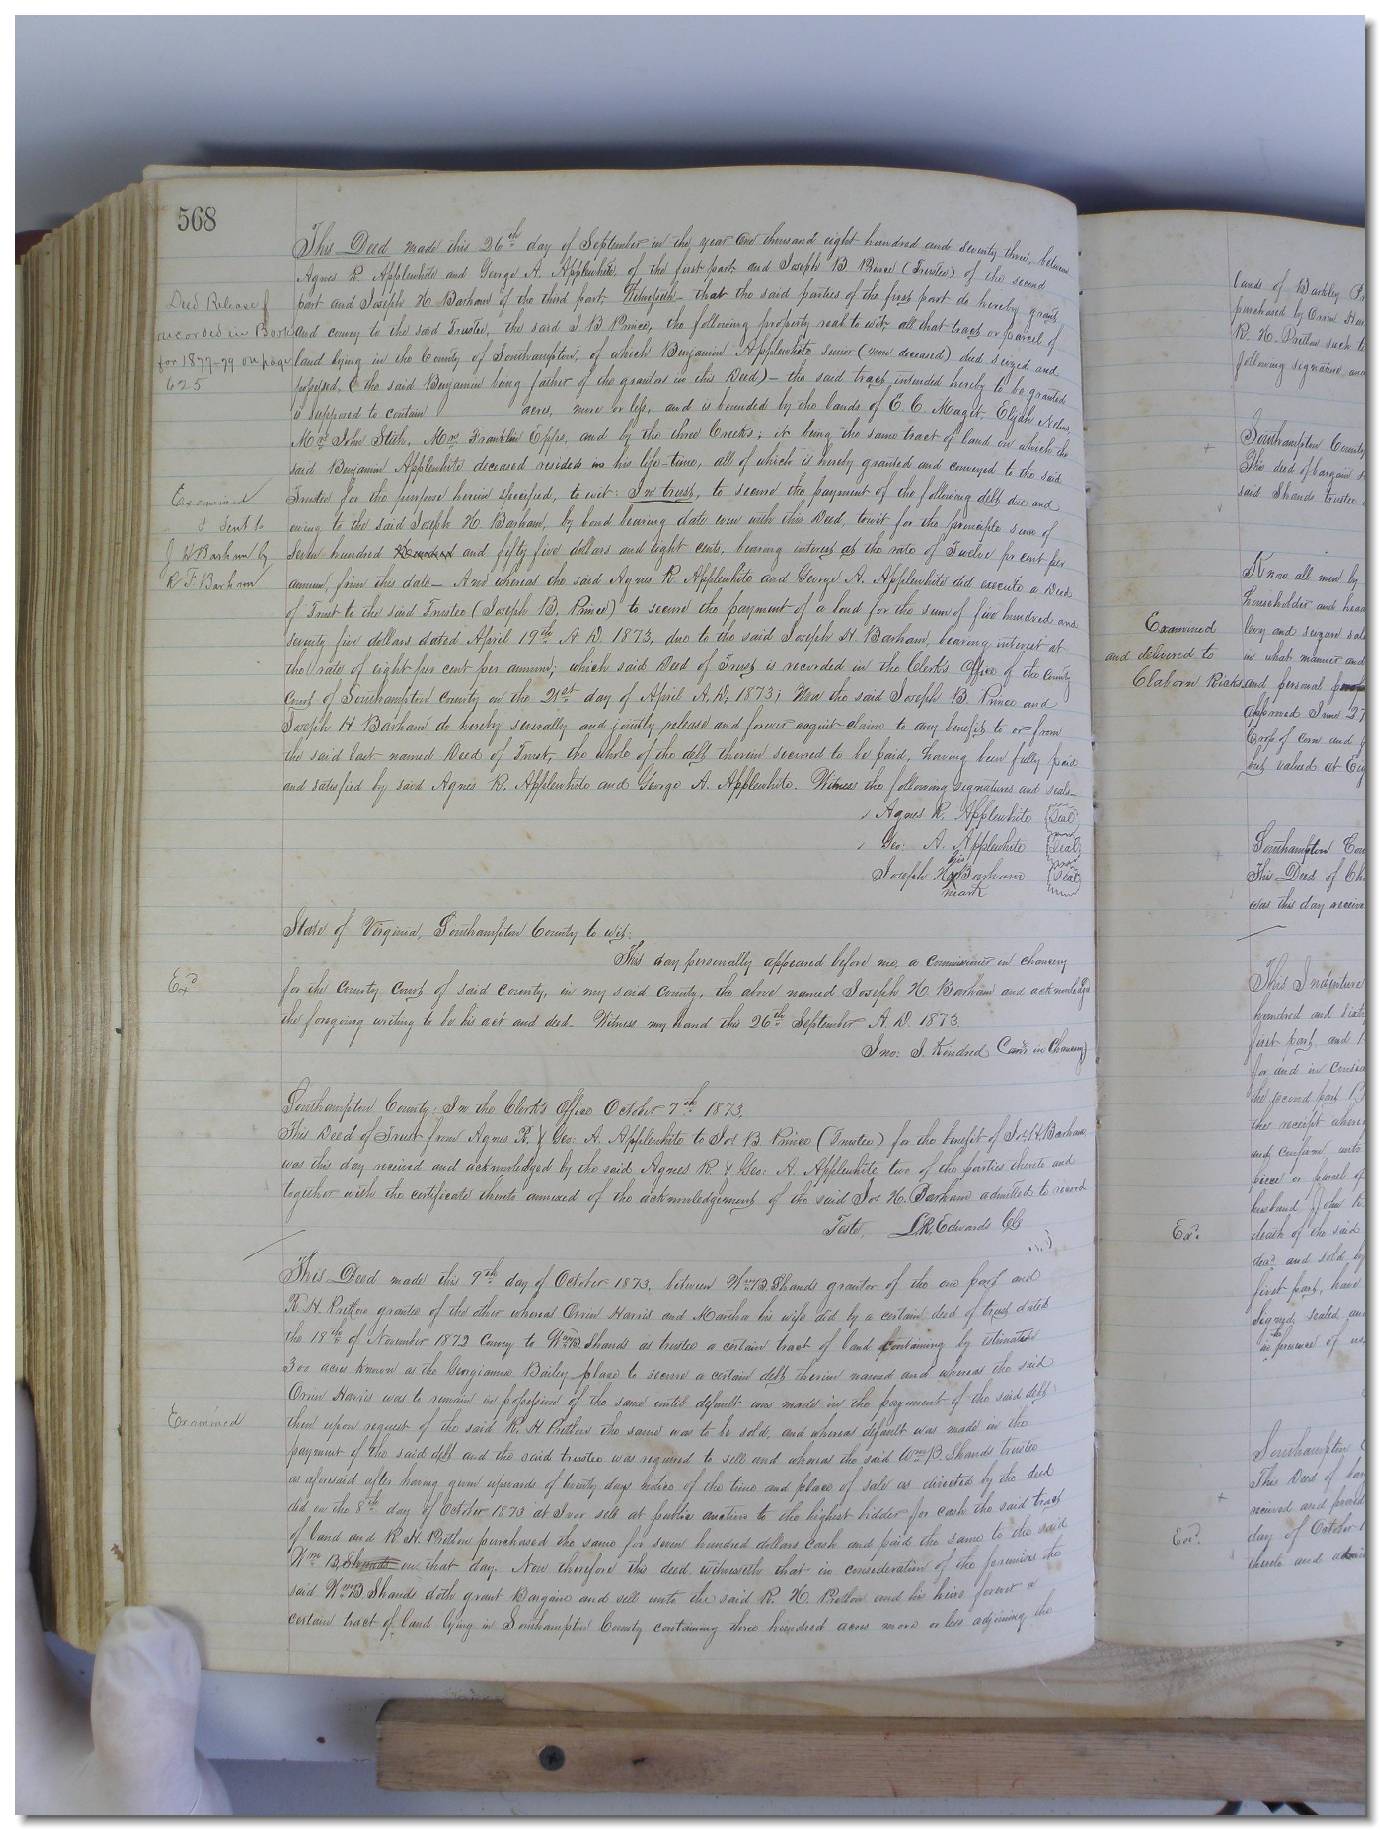 568
This Deed made this 26th day of September in the year One thousand eight hundred and seventy three, between
Agnes R. Applewhite and George A. Applewhite, of the first part, and Joseph B Prince (Trustee) of the second
part and Joseph H Barham of the third part; Witnesseth - that the said parties of the first part do hereby grant
and convey to the said Trustee, the said J B Prince, the following property real to wit, all that tract or parcel of
land lying in the County of Southampton, of which Benjamin Applewhite senior (now deceased) died seized and
possessed, (the said Benjamin being father of the grantors in this Deed) - the said tract intended hereby to be granted
is supposed to contain acres, more or less, and is bounded by the lands of E. C. Magit, Elijah
Mrs John Stith, Mrs Franklin Epps, and by the three Creeks; it being the same tract of land on which the
said Benjamin Applewhite deceased resided in his life-time, all of which is hereby granted and conveyed to the said
Trustee for the purpose herein specified, to wit: In trust, to secure the payment of the following debt due and
owing to the said Joseph H. Barham, by bond bearing date even with this Deed, towit for the principle sum of
Seven hundred Hundred and fifty five dollars and eight cents, bearing interest at the rate of Twelve per cent per
annum, from this date - And whereas the said Agnes R Applewhite and George A. Applewhite did execute a Deed
of Trust to the said Trustee (Joseph B. Prince) to secure the payment of a bond for the sum of five hundred and
seventy five dollars dated April 19th A D. 1873, due to the said Joseph H. Barham, bearing interest at
the rate of eight per cent per annum; which said Deed of Trust is recorded in the Clerk's Office of the County
Court of Southampton County on the 21st day of April A. D, 1873; Now the said Joseph B. Prince and
Joseph H Barham do hereby severally and jointly release and forever acquit claim to any benefit to or from
the said last named Deed of Trust, the whole of the debt therein secured to be paid, having been fully paid
and satisfied by said Agnes R. Applewhite and George A. Applewhite. Witness the following signatures and seals-
Agnes R. Applewhite (Seal)
Geo: A. Applewhite (Seal)
his
Joseph H x Barham (Seal)
mark
State of Virginia, Southampton County to wit:
This day personally appeared before me, a commissioner in chancery
for the County Court of said County, in my said County, the above named Joseph H Barham and acknowledged
the foregoing writing to be his act and deed. Witness my hand this 26th September A. D. 1873.
Jno: J. Kindred Comr in Chancery
Southampton County: In the Clerk's Office October 7th 1873.
This Deed of Trust from Agnes R. & Geo: A. Applewhite to Jos B. Prince (Trustee) for the benefit of Jos H. Barham
was this day received and acknowledged by the said Agnes R. & Geo: A. Applewhite two of the parties thereto and
together with the certificate thereto annexed of the acknowledgement of the said Jos H. Barham admitted to record
Teste, L. R. Edwards CC
This Deed made this 9th day of October 1873, between Wm B. Shands grantor of the one part and
R. H. Pretlow grantee of the other whereas Orrin Harris and Martha his wife did by a certain deed of trust dated
the 18th of November 1872 Convey to Wm B Shands as trustee a certain tract of land containing by estimation
300 acres known as the Georgianna Bailey place to secure a certain debt therein named and whereas the said
Orrin Harris was to remain in possession of the same until default was made in the payment of the said debt
then upon request of the said R. H Pretlow the same was to be sold, and whereas default was made in the
payment of the said debt and the said trustee was required to sell and whereas the said Wm B Shands trustee
as aforesaid after having given upwards of twenty days notice of the time and place of sale as directed by the deed
did on the 8th day of October 1873 at Ivor sell at public auction to the highest bidder for cash the said tract
of land and R H. Pretlow purchased the same for seven hundred dollars cash and paid the same to the said
Wm B. Shands on that day. Now therefore this deed witnesseth that in consideration of the premises the
said Wm B Shands doth grant Bargain and sell unto the said R. H. Pretlow and his heirs forever a
certain tract of land lying in Southampton County containing three hundred acres more or less adjoining the
Deed Release of
recorded in Book
for 1877-79 on page
625
Examined
& sent to
J H Barham by
R F Barham
Exd
Examined
lands of Barkley
purchased by Orrin Har
R. H. Pretlow such
following signature and
Southampton County
This deed of bargain
said Shands trustee
Know all men by
householder and head
levy and seizure
in what manner and
and personal
approved June 27
Crop of corn and
but valued at
Examined
and delivered to
Claborn Ricks
Southampton Cou
This Deed of
was this day receive
This Indenture
hundred and sixty
first part, and
for and in consid
the second part
the receipt where
and confirm unto
piece or parcel of
husband John
death of the said
decd and sold by
first part, have
Signed, sealed and
in presence of us
Exd.
Southampton
This Deed of bar
received and
day of October
thereto and
Exd.